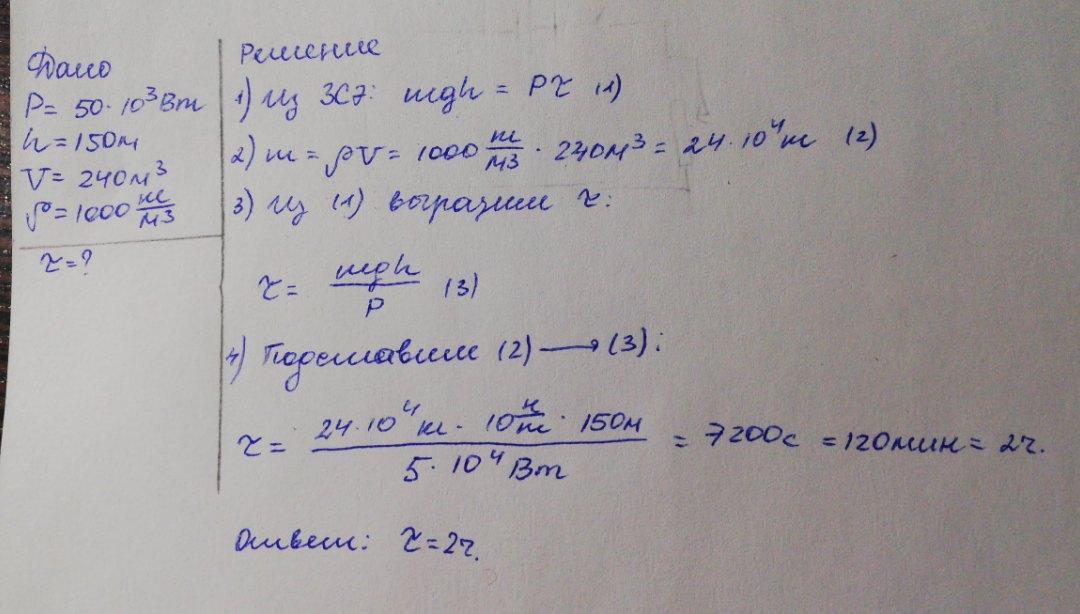 Дано
P = 50·10³ Вт
h = 150м
V = 240м³
ρ = 1000 кг/м³
τ = ?
Решение
1) Из ЗСЭ: mgh = Pτ (1)
2) m = ρV = 1000 кг/м³ · 240м³ = 24·10⁴кг (2)
3) Из (1) выразим τ:
τ = mgh/P (3)
4) Подставим (2) → (3):
τ = 24·10⁴кг · 10 Н/кг · 150м / 5·10⁴Вт = 7200с = 120мин = 2ч.
Ответ: τ = 2ч.